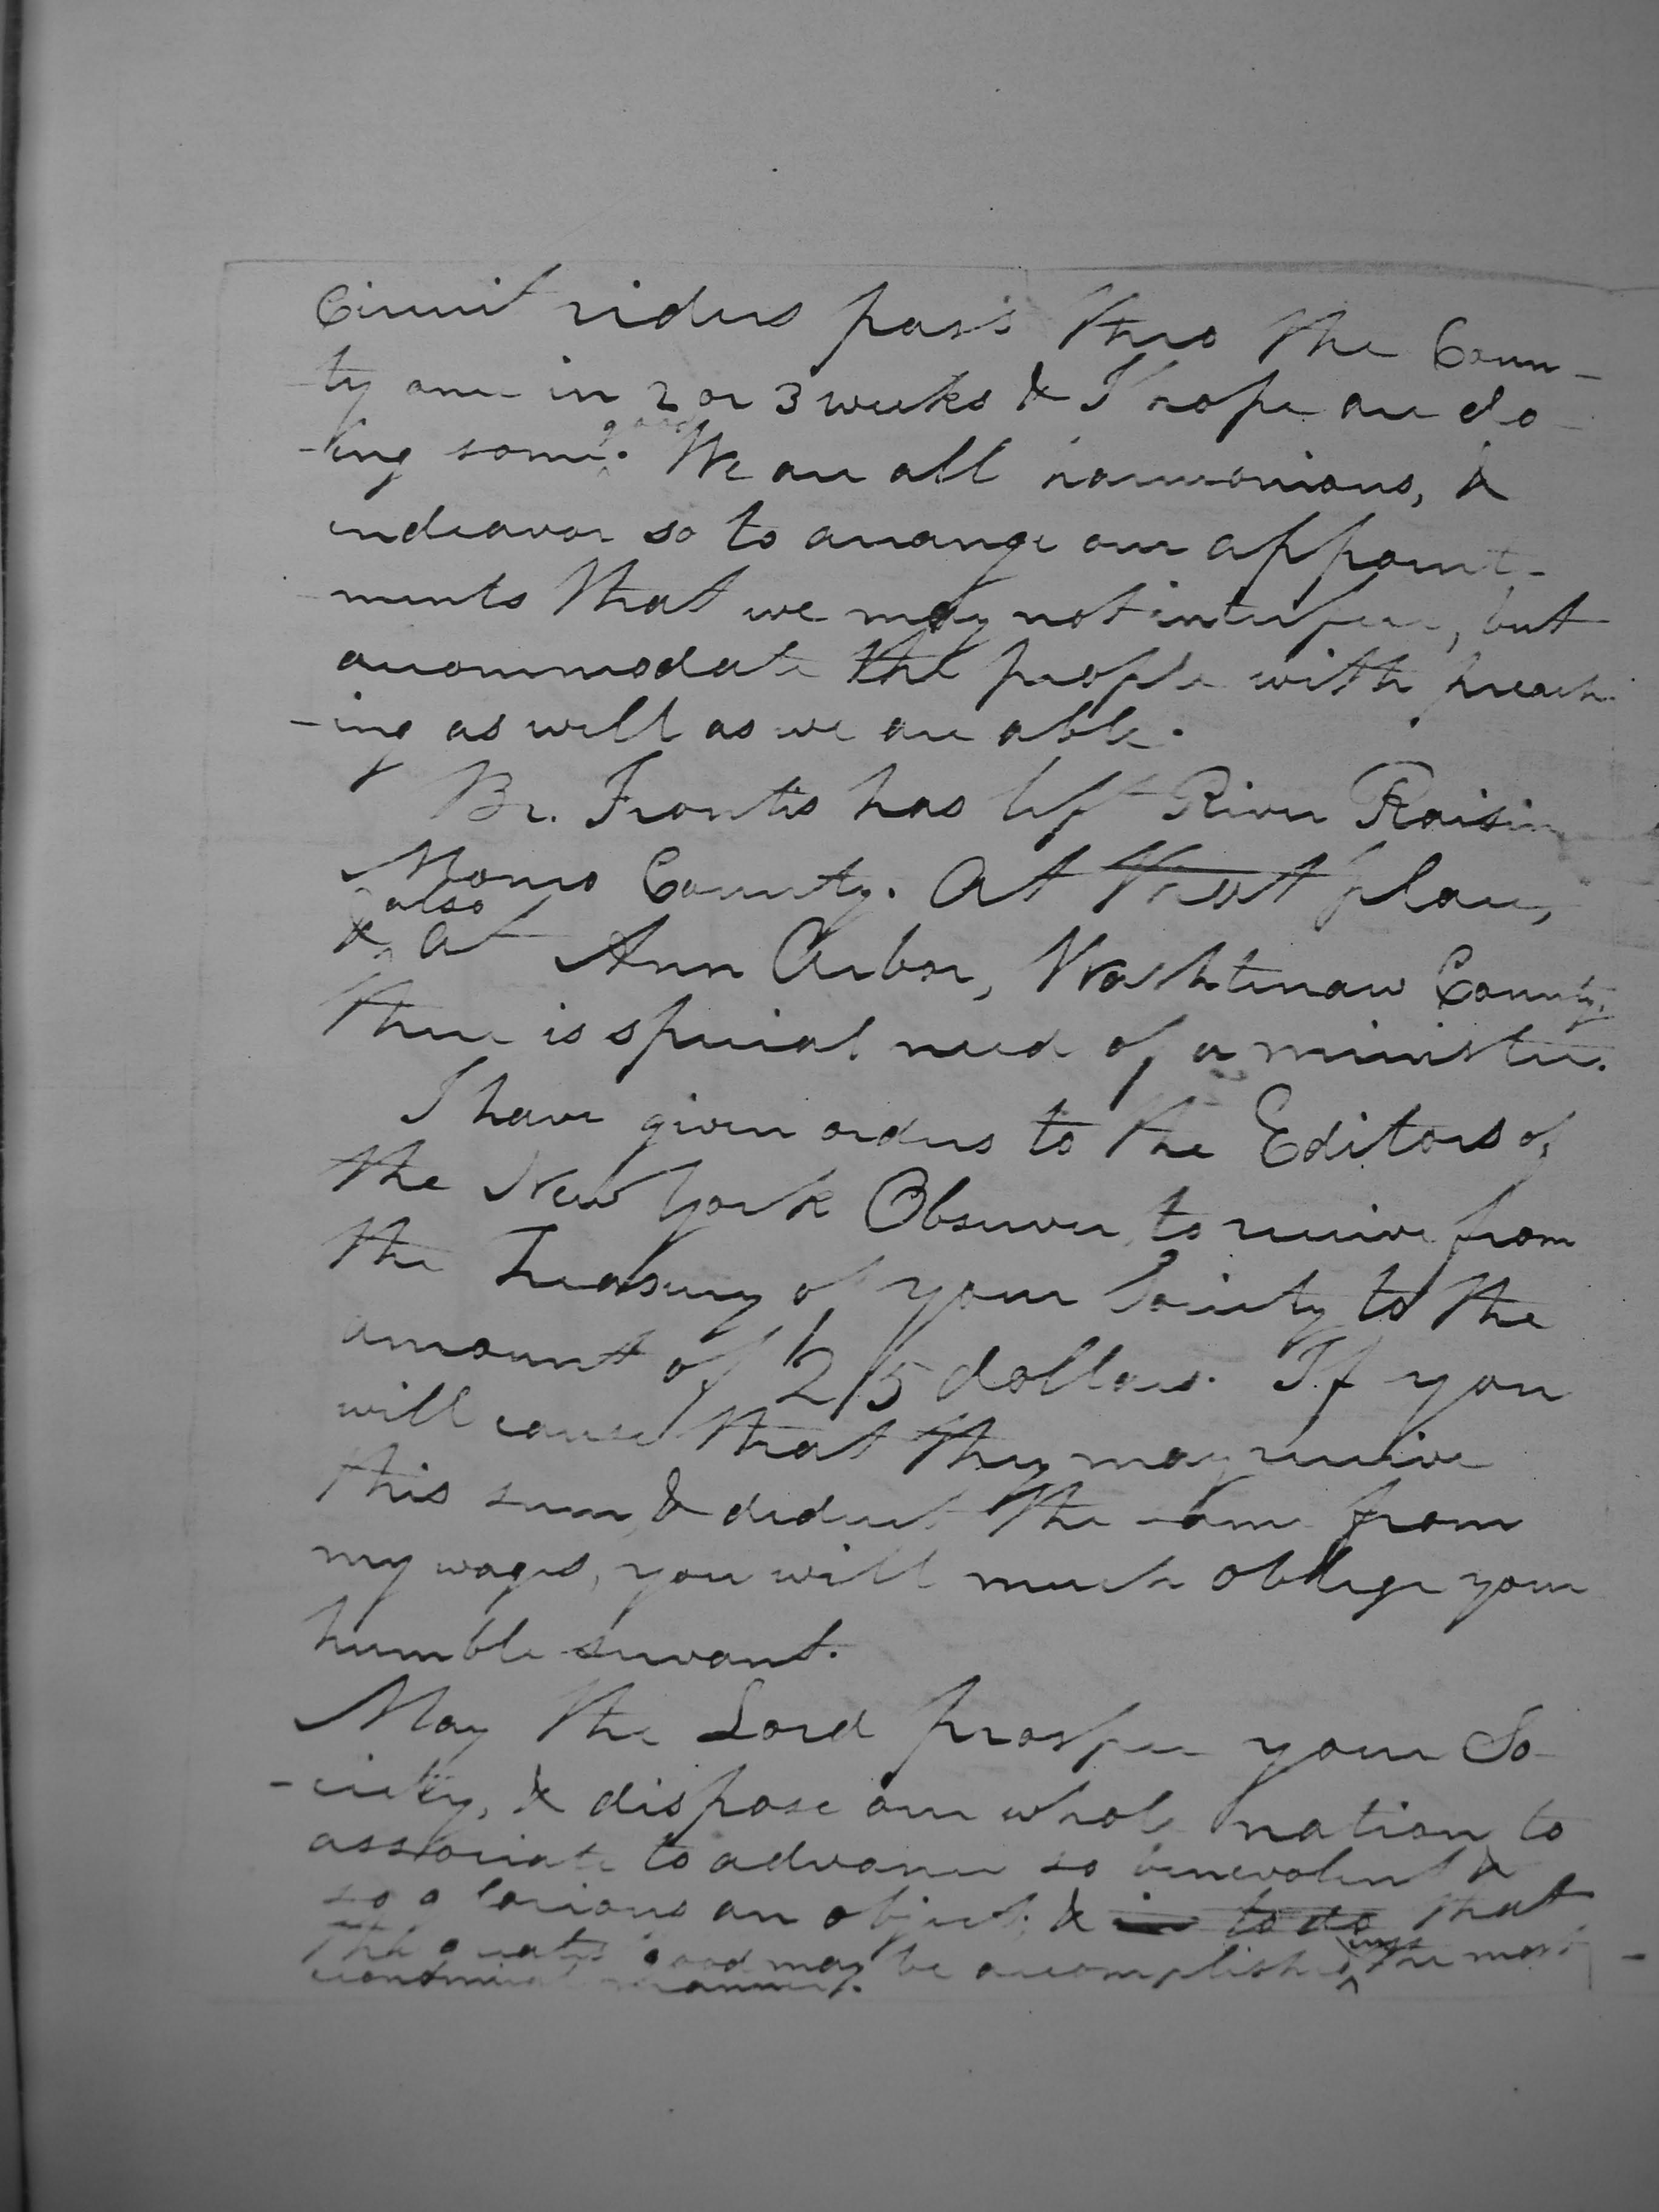 Circuit riders pass thro the Coun-
ty once in 2 or 3 weeks & I hope are do-
-ing some good. We are all harmonious, &
endeavor so to arrange our appoint-
ments that we may not interfere, but
accommodate the people with preach-
-ing as well as we are able.
Br. Frontis has left River Raisin
Monro County. At that place,
& also at Ann Arbor, Washtenaw County,
there is special need of a minister.
I have given orders to the Editors of
the New York Observer, to receive from
the Treasury of your Society to the
amount of dollars. If you
will cause that they may receive
this sum, & deduct the same from
my wages, you will much oblige your
humble servant.
May the Lord prosper your So-
-ciety, & dispose our whole nation to
associate to advance so benevolent &
so glorious an object; & in to do that
the greatest good may be accomplished in the most
economical manner.